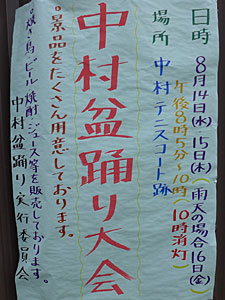 日時 8月14日(水) 15日(木) (雨天の場合16日(金))
午後8時5分〜10時(10時消灯)
場所 中村テニスコート跡
中村盆踊り大会
◦景品をたくさん用意しております。
◦焼き鳥、ビール、焼酎、ジュース等を販売しております。
中村盆踊り実行委員会